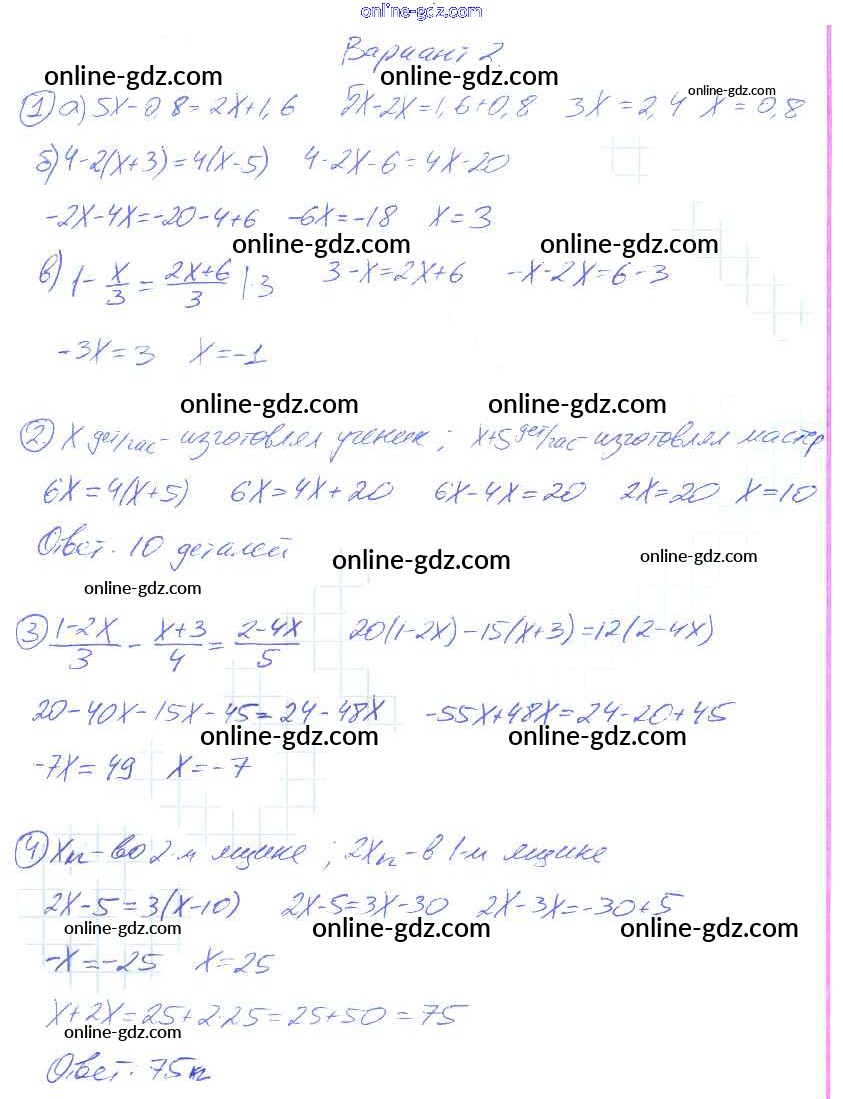 online-gdz.com
Вариант 2
online-gdz.com online-gdz.com online-gdz.com
1 а) 5x-0,8=2x+1,6 5x-2x=1,6+0,8 3x=2,4 x=0,8
б) 4-2(x+3)=4(x-5) 4-2x-6=4x-20
-2x-4x=-20-4+6 -6x=-18 x=3
online-gdz.com online-gdz.com
в) 1-x/3=2x+6/3 |·3 3-x=2x+6 -x-2x=6-3
-3x=3 x=-1
online-gdz.com online-gdz.com
2 x дет/час-изготовлял ученик; x+5 дет/час-изготовлял мастер
6x=4(x+5) 6x=4x+20 6x-4x=20 2x=20 x=10
Ответ. 10 деталей
online-gdz.com online-gdz.com
online-gdz.com
3 1-2x/3 - x+3/4 = 2-4x/5 20(1-2x)-15(x+3)=12(2-4x)
20-40x-15x-45=24-48x -55x+48x=24-20+45
online-gdz.com online-gdz.com
-7x=49 x=-7
4 xл-во 2-м ящике; 2xл-в 1-м ящике
2x-5=3(x-10) 2x-5=3x-30 2x-3x=-30+5
online-gdz.com online-gdz.com online-gdz.com
-x=-25 x=25
x+2x=25+2·25=25+50=75
online-gdz.com
Ответ. 75л